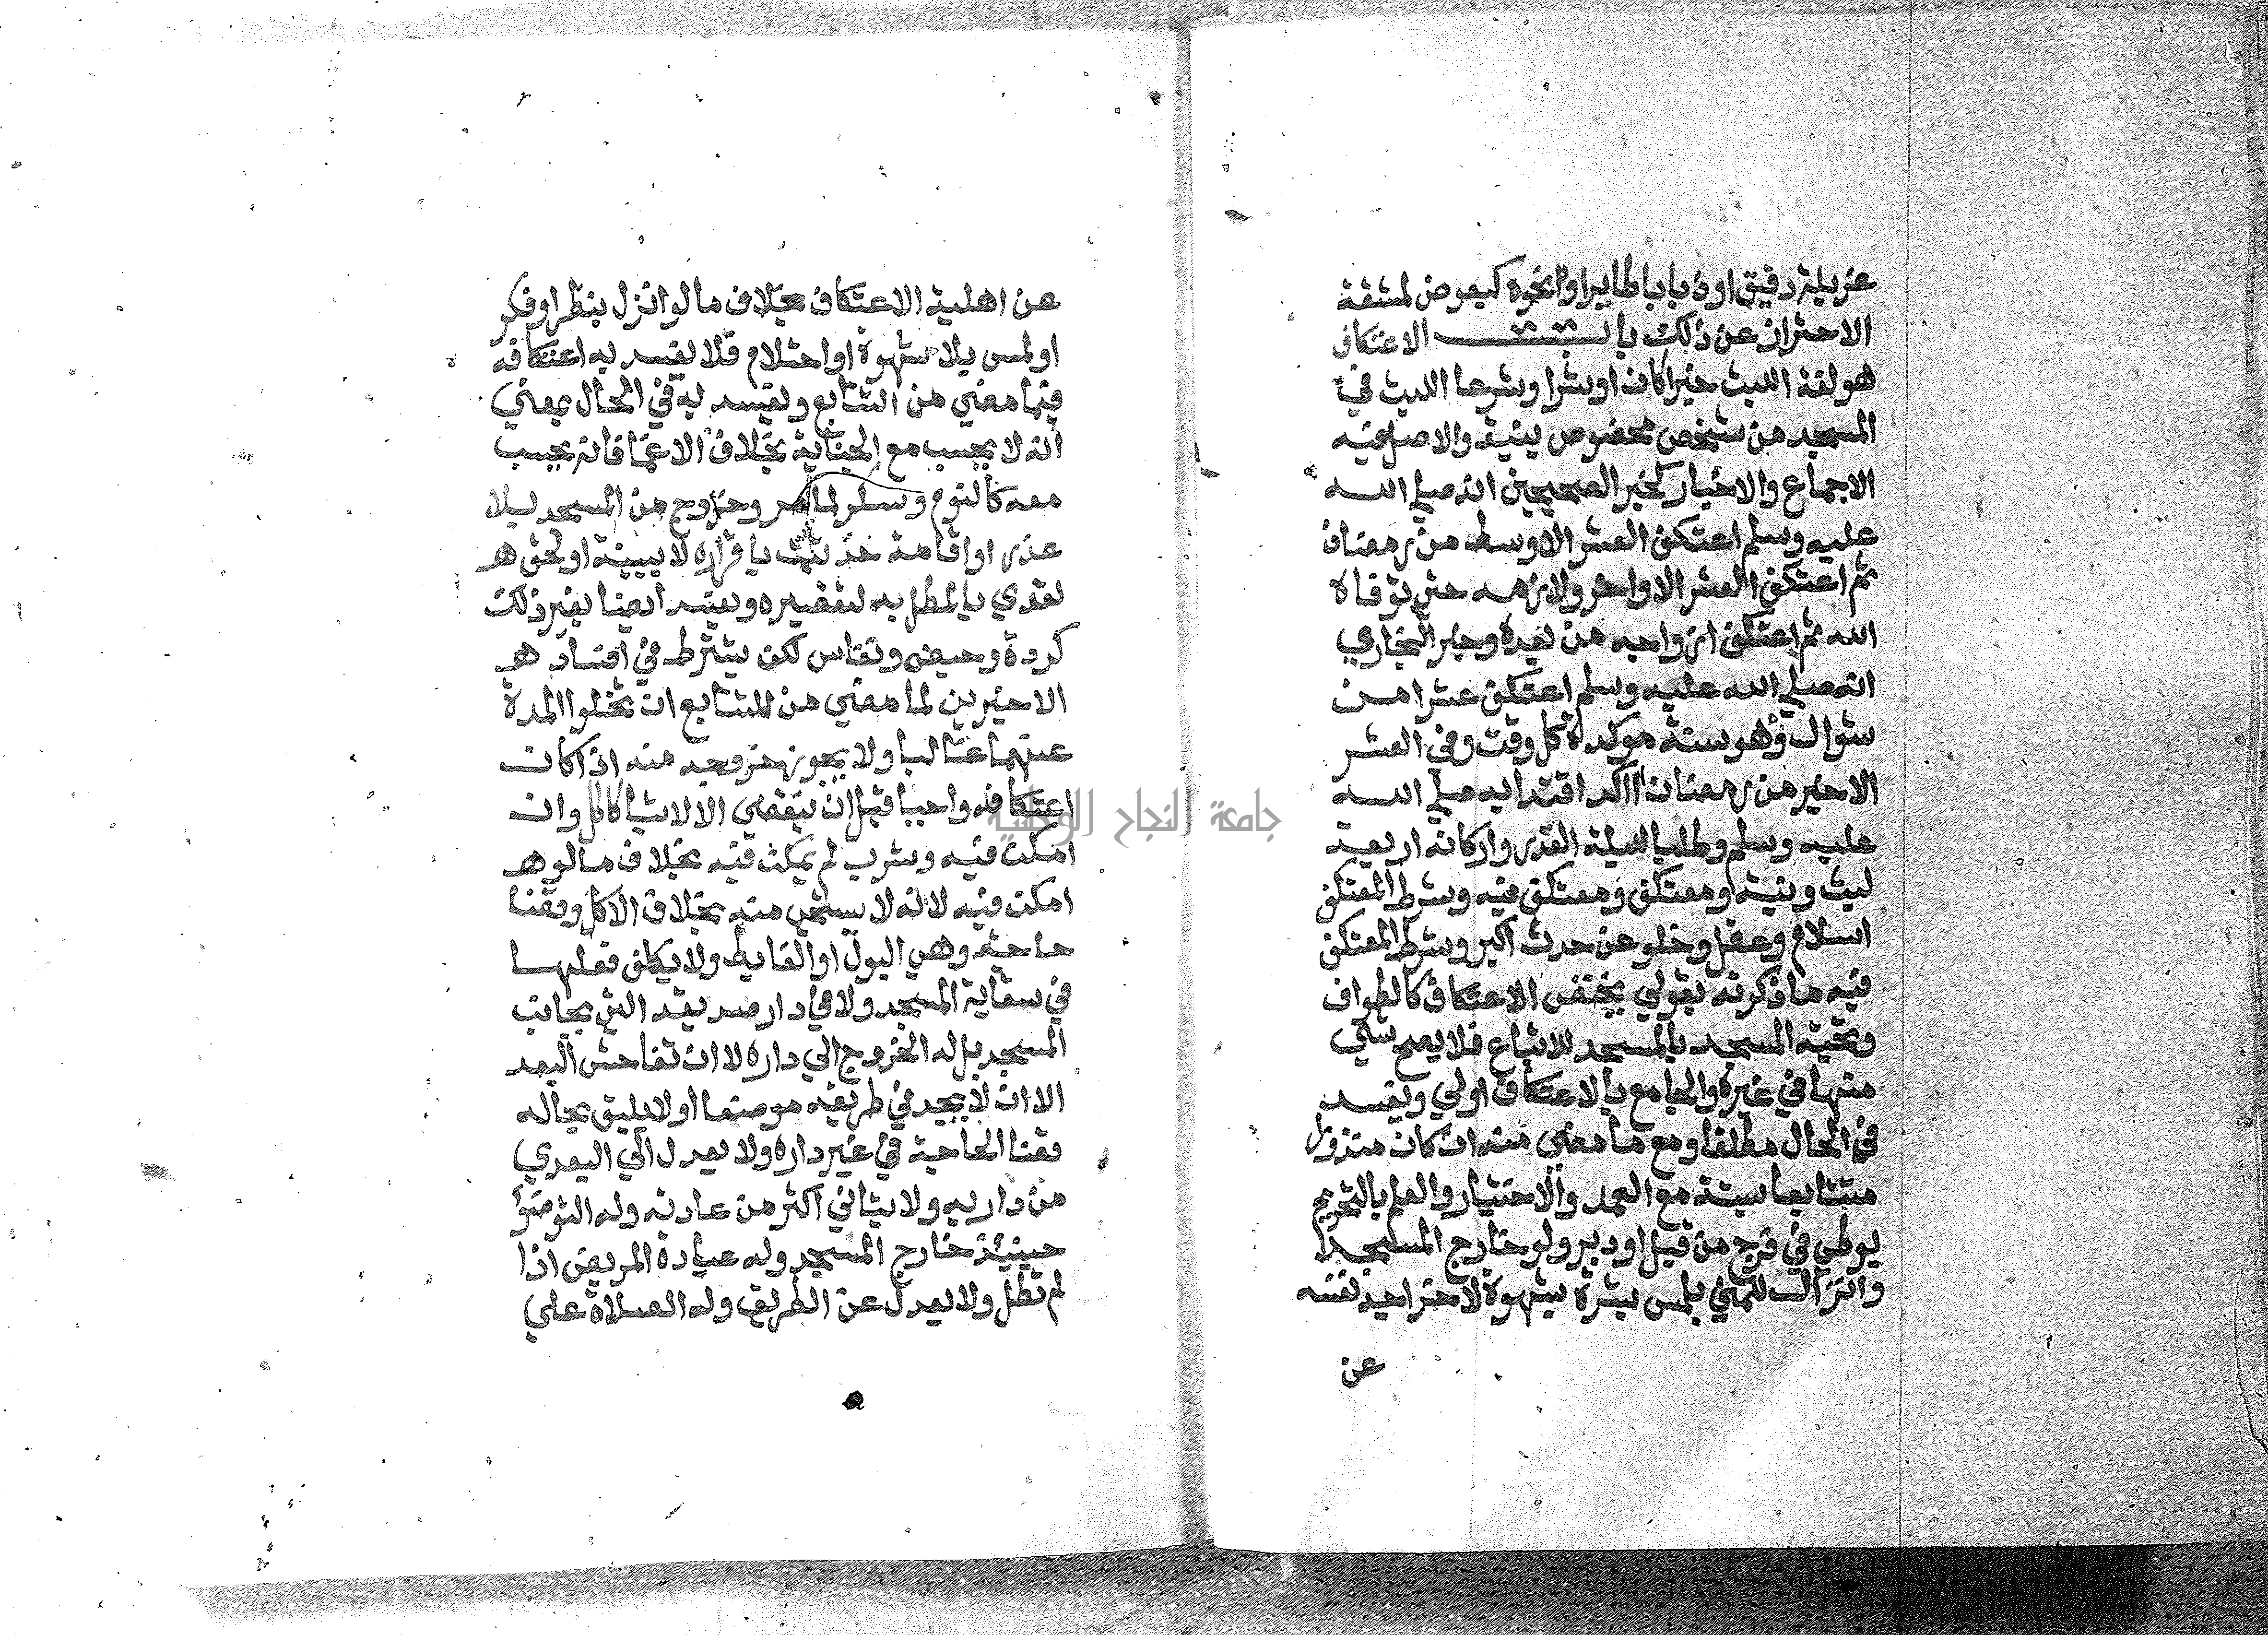 غربلة دقيق او ذبابا طايرا او نحوه كبعوض لمشقة
الاحتراز عن ذلك باب الاعتكاف
هو لغة اللبث خيرا كان او شرا وشرعا اللبث في
المسجد من شخص مخصوص بنية والاصل فيه
الاجماع والاخبار كخبر الصحيحين انه صلي الله
عليه وسلم اعتكف العشر الاوسط من رمضان
ثم اعتكف العشر الاواخر ولازمه حتي توفاه
الله ثم اعتكف ازواجه من بعده وخبر البخاري
انه صلي الله عليه وسلم اعتكف عشرا من
شوال وهو سنة موكدة كل وقت وفي العشر
الاخير من رمضان اكد اقتدا به صلي الله
عليه وسلم وطلبا لليلة القدر واركانه اربعة
لبث ونية ومعتكف ومعتكف فيه وشرط المعتكف
اسلام وعقل وخلو عن حدث اكبر وشرط المعتكف
فيه ما ذكرته بقولي يختص الاعتكاف كالطواف
وتحية المسجد بالمسجد للاتباع فلا يصح شي
منها في غيره والجامع بالاعتكاف اولي ويفسد
في الحال مطلقا ومع ما مضي منه ان كان منذورا
متتابعا ستة مع العمد والاختيار والعلم بالتحريم
بوطي في فرج من قبل او دبر ولو خارج المسجد
وانزال للمني بلمس بشرة بشهوة لاخراجه نفسه
عن
عن اهلية الاعتكاف بخلاف ما لو انزل بنظر او فكر
او لمس بلا شهوة او احتلام فلا يفسد به اعتكافه
فيما مضي من التتابع ويفسد به في الحال بمعني
انه لا يحسب مع الجنابة بخلاف الاغما فانه يحسب
معه كالنوم وسكر لما مر وخروج من المسجد بلا
عذر او اقامة حد ثبت باقراره لا ببينة او لحق هـ
لقدي بالمطل به لتقصيره ويفسد ايضا بغير ذلك
كردة وحيض ونفاس لكن يشترط في افساد هـ
الاخيرين لما مضي من المتتابع ان تخلوا المدة
عنهما غالبا ولا يجوز خروجه منه اذا كان
اعتكافه واجبا قبل ان ينقضي الا لاشيا كاكل وان
امكن فيه وشرب لم يمكن فيه بخلاف ما لو هـ
امكن فيه لانه لا يستحي منه بخلاف الاكل وقضا
حاجة وهي البول او الغايط ولا يكلف فعلها
في سقاية المسجد ولا في دار صديقه التي بجانب
المسجد بل له الخروج الي داره لا ان تفاحش البعد
الا ان لا يجد في طريقه موضعا او لا يليق بحاله
قضا الحاجة في غير داره ولا يعدل الي البعدي
من داريه ولا يتاني اكثر من عادته وله التوضؤ
حينيذ خارج المسجد وله عيادة المريض اذا
لم تطل ولا يعدل عن الطريق وله الصلاة علي
جامعة النجاح الوطنية